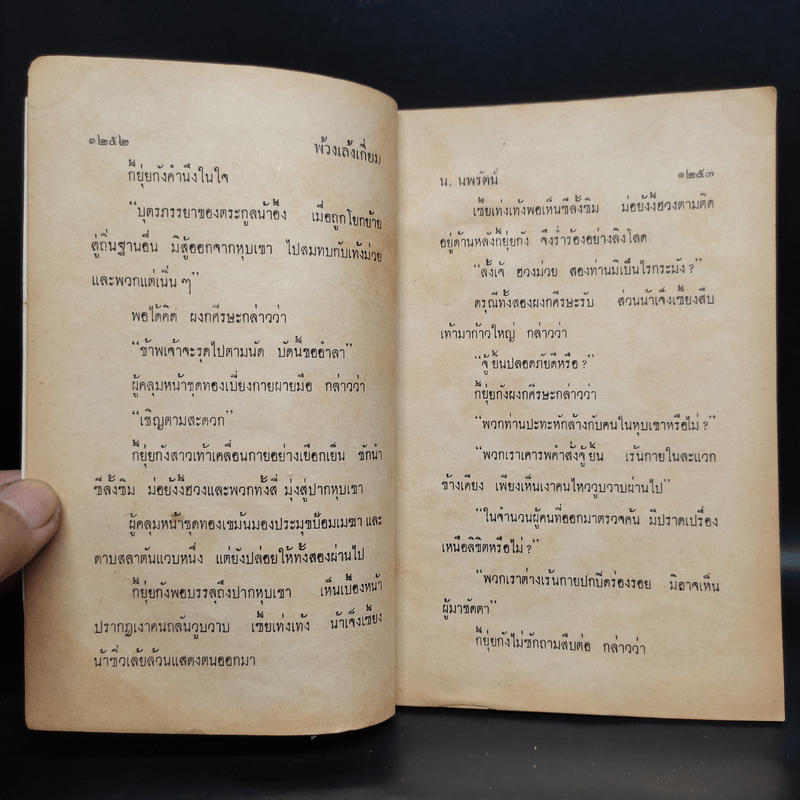 ๑๒๕๒
พ้วงเล้งเกี่ยม
ก๊ยุ่ยกังคำนึงในใจ
“บุตรภรรยาของตระกูลน้าอึ้ง เมื่อถูกโยกย้าย
สู่ถิ่นฐานอื่น มิสู้ออกจากหุบเขา ไปสมทบกับเท้งม่วย
และพวกแต่เนิ่น ๆ”
พอได้คิด ผงกศีรษะกล่าวว่า
“ข้าพเจ้าจะรุดไปตามนัด บัดนี้ขออำลา”
ผู้คลุมหน้าชุดทองเบี่ยงกายผายมือ กล่าวว่า
“เชิญตามสะดวก”
ก๊ยุ่ยกังสาวเท้าเคลื่อนกายอย่างเยือกเย็น ชักนำ
ซีลั้งซิม ม่อยังงี้ฮวงและพวกทั้งสี่ มุ่งสู่ปากหุบเขา
ผู้คลุมหน้าชุดทองเขม้นมองประมุขป้อมเมฆา และ
ดาบสลาตันแวบหนึ่ง แต่ยังปล่อยให้ทั้งสองผ่านไป
ก๊ยุ่ยกังพอบรรลุถึงปากหุบเขา เห็นเบื้องหน้า
ปรากฏเงาคนถลันวูบวาบ เซี้ยเท่งเท้ง น้าเจ็งเซี้ยง
น้าซิ่วเล้ยล้วนแสดงตนออกมา
น. นพรัตน์
๑๒๕๓
เซี้ยเท่งเท้งพอเห็นซีลั้งซิม ม่อยังงี้ฮวงตามติด
อยู่ด้านหลังก๊ยุ่ยกัง จึงร่ำร้องอย่างลิงโลด
“ลั้งเจ้ ฮวงม่วย สองท่านมิเป็นไรกระมัง?”
ดรุณีทั้งสองผงกศีรษะรับ ส่วนน้าเจ็งเซี้ยงสืบ
เท้ามาก้าวใหญ่ กล่าวว่า
“จู้ยิ้นปลอดภัยดีหรือ?”
ก๊ยุ่ยกังผงกศีรษะกล่าวว่า
“พวกท่านปะทะหักล้างกับคนในหุบเขาหรือไม่?”
“พวกเราเคารพคำสั่งจู้ยิ้น เร้นกายในละแวก
ข้างเคียง เพียงเห็นเงาคนไหววูบวาบผ่านไป”
“ในจำนวนผู้คนที่ออกมาตรวจค้น มีปราดเปรื่อง
เหนือลิขิตหรือไม่?”
“พวกเราต่างเร้นกายปกปิดร่องรอย มิอาจเห็น
ผู้มาชัดตา”
ก๊ยุ่ยกังไม่ซักถามสืบต่อ กล่าวว่า